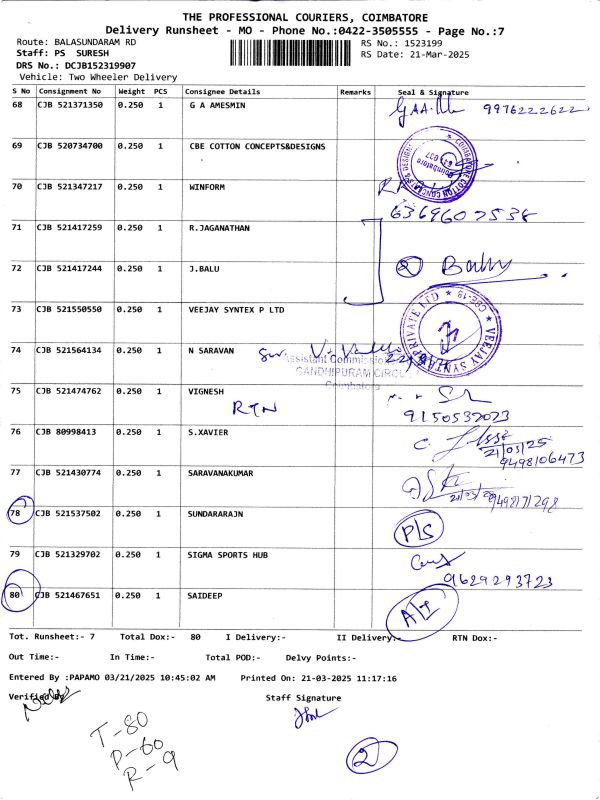 THE PROFESSIONAL COURIERS, COIMBATORE
Delivery Runsheet - MO - Phone No.:0422-3505555 - Page No.:7
Route: BALASUNDARAM RD RS No.: 1523199
Staff: PS SURESH RS Date: 21-Mar-2025
DRS No.: DCJB152319907
Vehicle: Two Wheeler Delivery
S No Consignment No Weight PCS Consignee Details Remarks Seal & Signature
68 CJB 521371350 0.250 1 G A AMESMIN 9976222622
69 CJB 520734700 0.250 1 CBE COTTON CONCEPTS&DESIGNS
70 CJB 521347217 0.250 1 WINFORM
6369607538
71 CJB 521417259 0.250 1 R.JAGANATHAN
72 CJB 521417244 0.250 1 J.BALU 2 Balu
73 CJB 521550550 0.250 1 VEEJAY SYNTEX P LTD
74 CJB 521564134 0.250 1 N SARAVAN
Assistant Commissio
GANDHIPURAM CIRCL
Coimbatore
75 CJB 521474762 0.250 1 VIGNESH
RTN 9150537023
76 CJB 80998413 0.250 1 S.XAVIER
21/03/25
9498106473
77 CJB 521430774 0.250 1 SARAVANAKUMAR
78 CJB 521537502 0.250 1 SUNDARARAJN P/S
79 CJB 521329702 0.250 1 SIGMA SPORTS HUB
9629293723
80 CJB 521467651 0.250 1 SAIDEEP
Tot. Runsheet:- 7 Total Dox:- 80 I Delivery:- II Delivery:- RTN Dox:-
Out Time:- In Time:- Total POD:- Delvy Points:-
Entered By :PAPAMO 03/21/2025 10:45:02 AM Printed On: 21-03-2025 11:17:16
Verified By Staff Signature
T-80
P-60
R-9
2